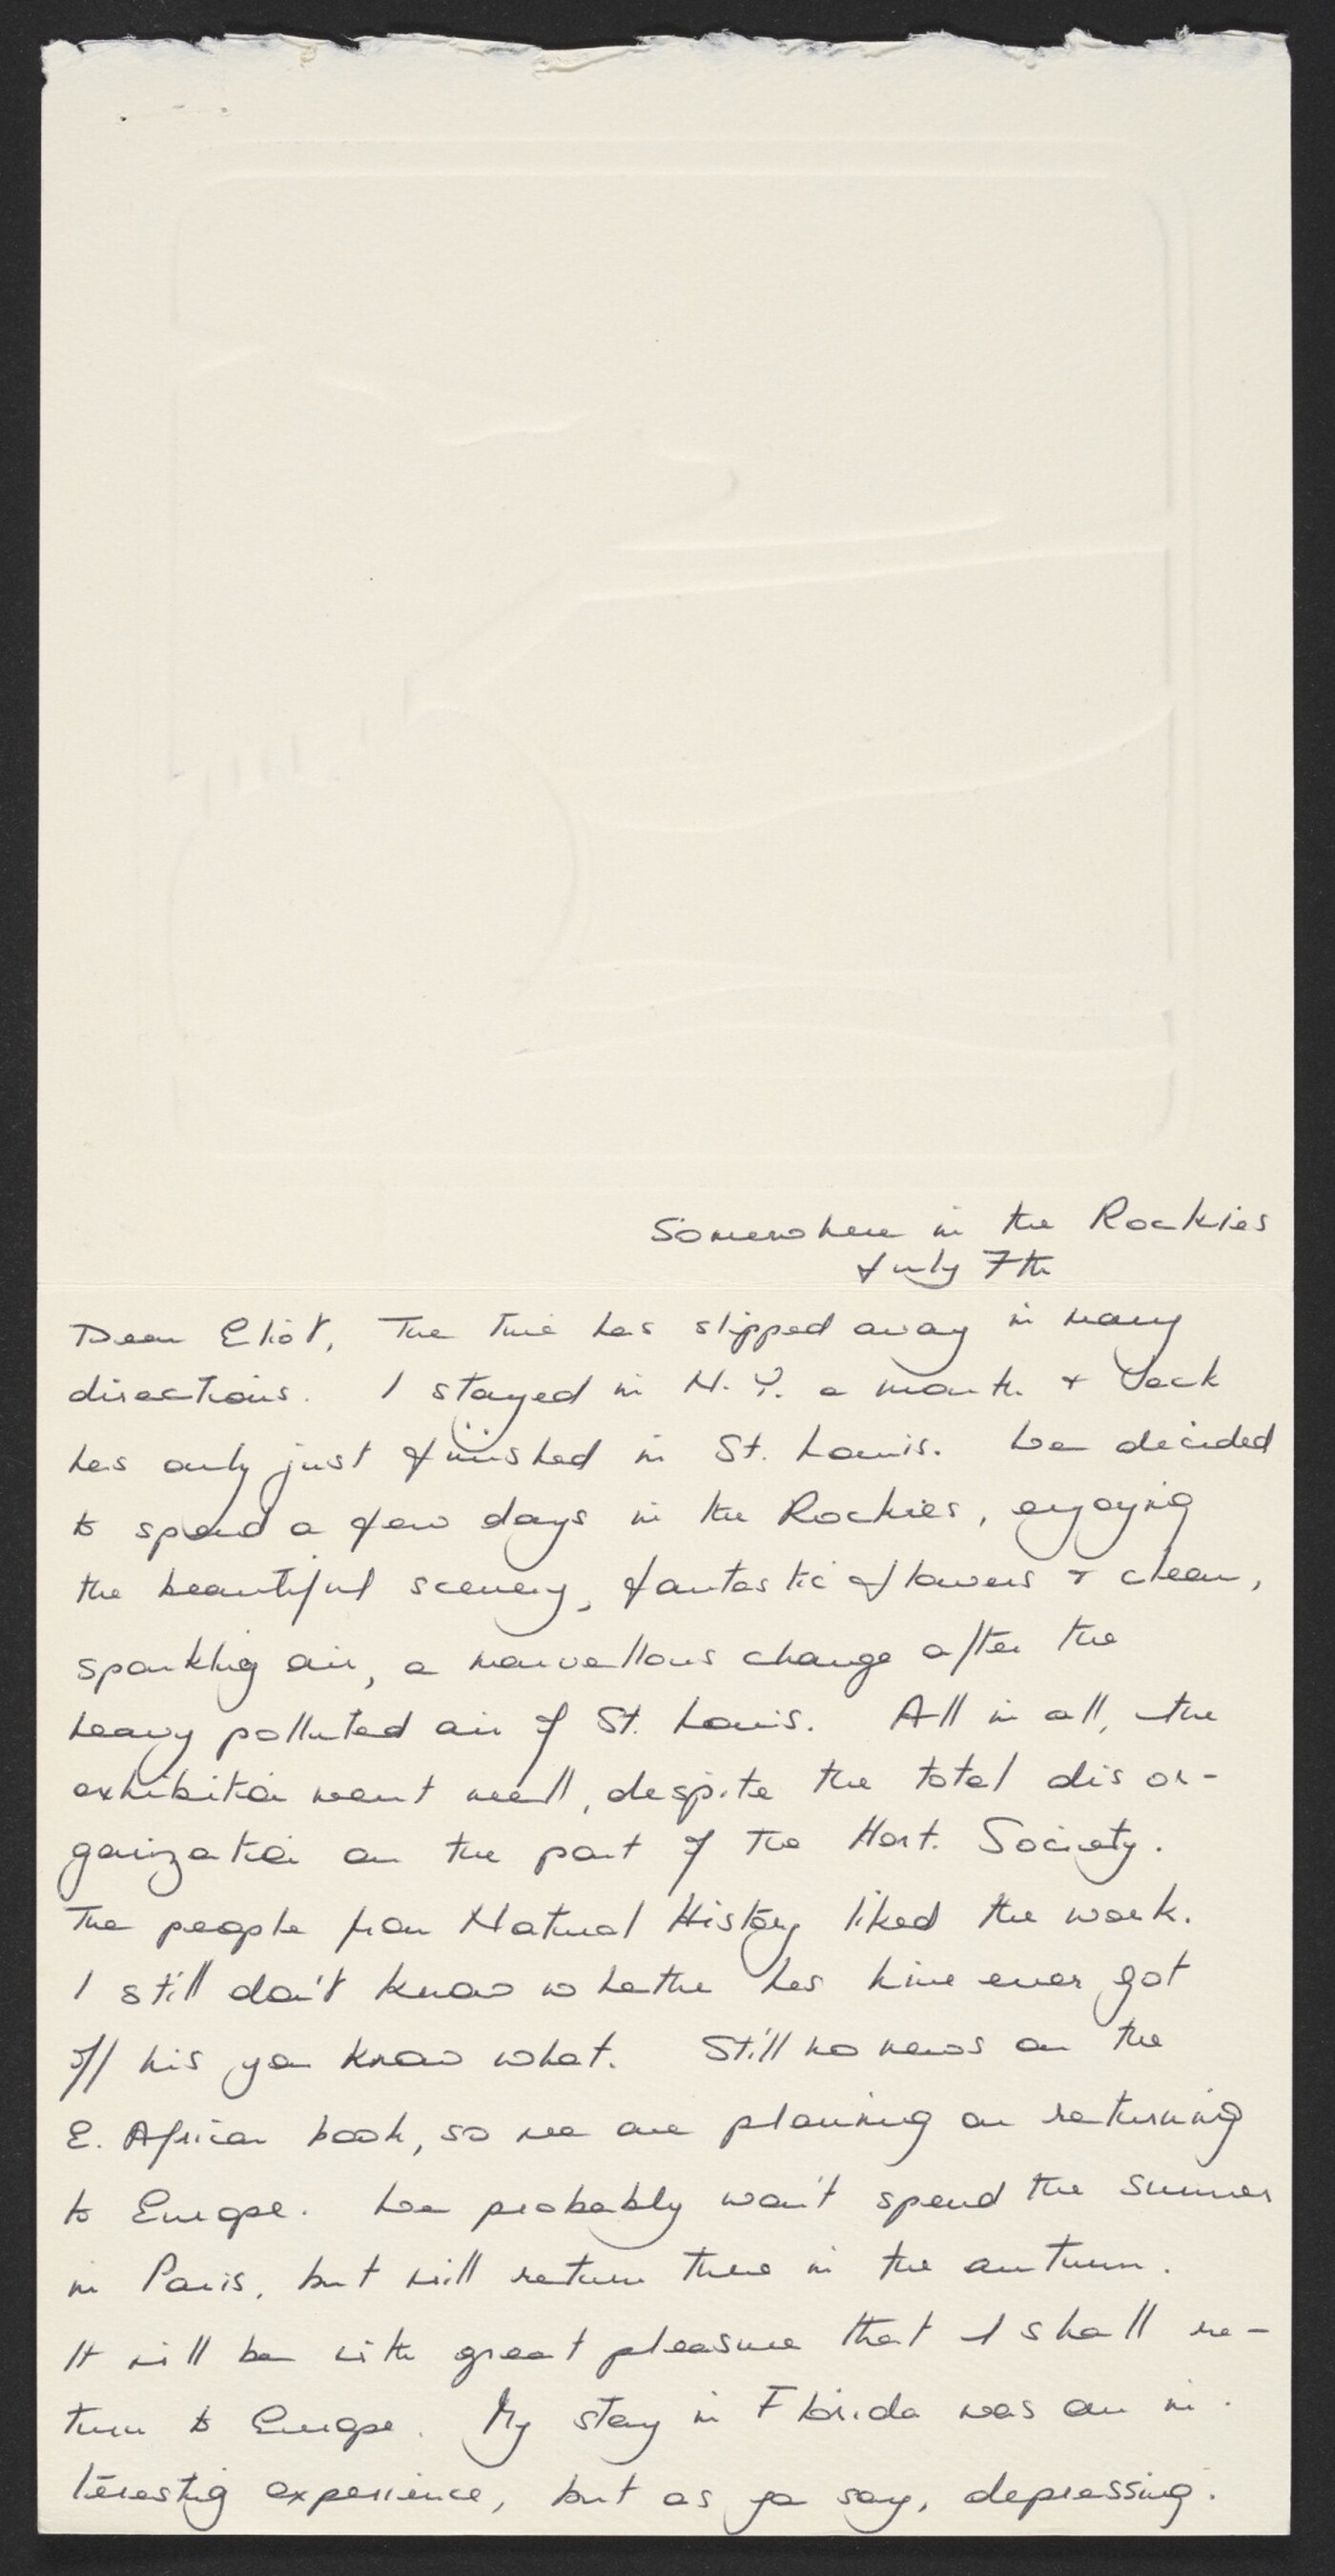 Somewhere in the Rockies
July 7th
Dear Eliot, The time has slipped away in many
directions. I stayed in N.Y. a month + Jack
has only just finished in St. Louis. We decided
to spend a few days in the Rockies, enjoying
the beautiful scenery, fantastic flowers + clean,
sparkling air, a marvellous change after the
heavy polluted air of St. Louis. All in all, the
exhibition went well, despite the total disor-
ganization on the part of the Hort. Society.
The people from Natural History liked the work.
I still don't know whether has ever got
off his you know what. Still no news on the
E. African book, so we are planning on returning
to Europe. We probably won't spend the summer
in Paris, but will return there in the autumn.
It will be with great pleasure that I shall re-
turn to Europe. My stay in Florida was an in-
teresting experience, but as you say, depressing.